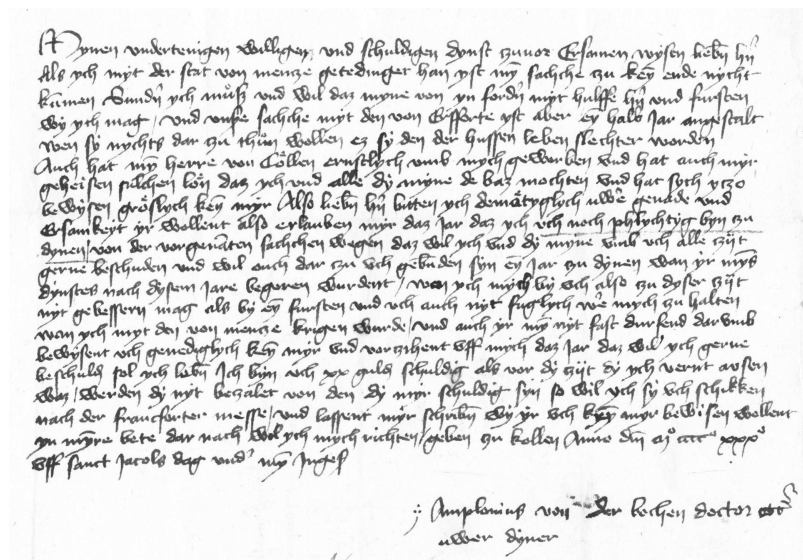 Mynen undertenigen willigen und schuldigen dynst zuvor Ersamen wysen lieben hn̄
Als ych myt der stat von mencze getedinget han yst my̅ sachche zu key̅ ende nycht
kumen Sundn̄ ych můsz und wil daz myne von yn fordn̄ myt hulffe hn̄ und fursten
wy ych mag / und unse sachche myt den von Erfforte yst aber ey̅ halb Jar angestalt
wen sy nychts dar zu thun wollen ez sy den der hussen leben slechter worden
Auch hat my̅ herre von Cöllen ernstlych umb mych geworben und hat auch myr
geheisen sulchen lon̄ daz ych und alle dy myne de baz mochten und hat sych yczo
bewysen gröslych key̅ myr Also liebn̄ hn̄ bitten ych demůtyglych uwe genade und
Ersamkeyt yr wollent also erlauben myr daz Jar daz ych uch noch phlychtyg byn zu
dynen / von der vorgenāten sachchen wegen daz wil ych und dy myne umb uch alle zyt
gerne beschulden und wil auch dar zu uch gebunden syn ey̅ Jar zu dynen wan yr mys
dynstes nach dysem jare begeren wurdent / wan ych mych by uch also zu dyser zyt
nyt gebessern mag als by ey̅ fursten und uch auch nyt fuglych we mych zu halten
wan ych myt den von mencze krigen wurde / und auch yr my̅ nyt fast durfend dar umb
bewysent uch genediglych key̅ myr und vorzihent uff mych daz Jar daz wil ych gerne
beschuld sol ych lebn̄ Ich byn uch xx guld schuldig als vor dy zyt dy ych vernt aussen
waz / werden dy nyt bezalet von den dy myr schuldig syn so wil uch sy uch schikken
nach der francforter messe / und lassent myr schribn̄ wy yr uch key̅ myr bewisen wollent
yn myre bete dar nach wil ych mych richten / geben zu kollen Anno dn̄i mº ccccº xxxº
uff sanct Jacobs dag und' my̅ Ingeß
Amplonius von der bechen doctor etc
uwer dyner